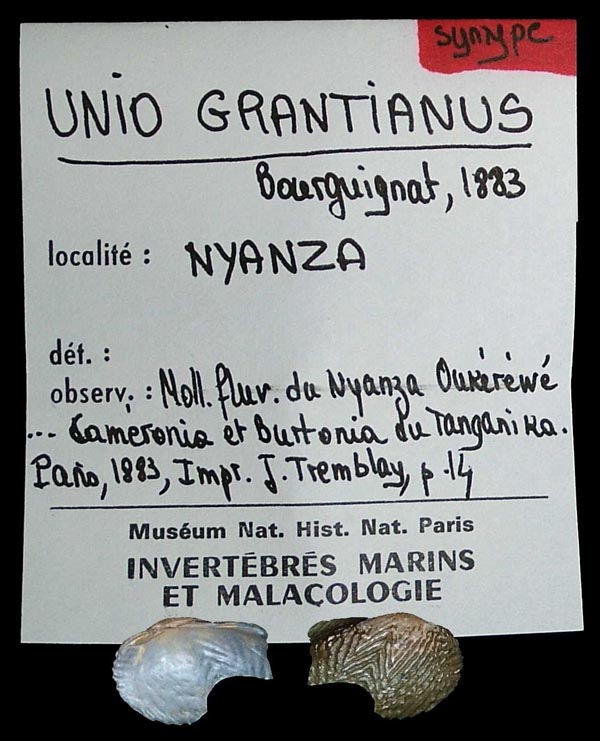 syntype
UNIO GRANTIANUS
Bourguignat, 1883
localité : NYANZA
dét. :
observ. : Moll. fluv. du Nyanza Oukéréwé
... Cameronia et Burtonia du Tanganika.
Paris, 1883, Impr. J. Tremblay, p. 14
Muséum Nat. Hist. Nat. Paris
INVERTÉBRÉS MARINS
ET MALACOLOGIE